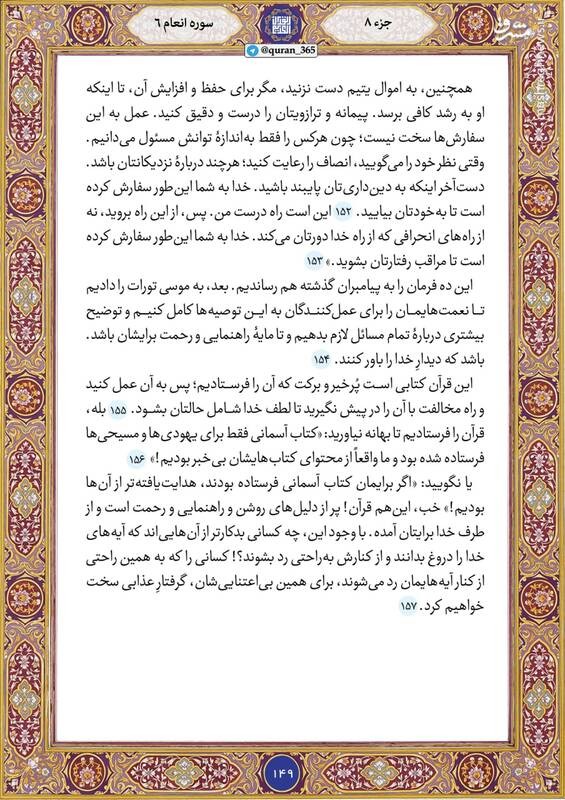 جزء ۸
سوره انعام ۶
مشرق
@quran_365
همچنین، به اموال یتیم دست نزنید، مگر برای حفظ و افزایش آن، تا اینکه
او به رشد کافی برسد. پیمانه و ترازویتان را درست و دقیق کنید. عمل به این
سفارش‌ها سخت نیست؛ چون هرکس را فقط به‌اندازهٔ توانش مسئول می‌دانیم.
وقتی نظر خود را می‌گویید، انصاف را رعایت کنید؛ هرچند دربارهٔ نزدیکانتان باشد.
دست‌آخر اینکه به دین‌داری‌تان پایبند باشید. خدا به شما این‌طور سفارش کرده
است تا به‌خودتان بیایید. ۱۵۲ این است راه درست من. پس، از این راه بروید، نه
از راه‌های انحرافی که از راه خدا دورتان می‌کند. خدا به شما این‌طور سفارش کرده
است تا مراقب رفتارتان بشوید.» ۱۵۳
این ده فرمان را به پیامبران گذشته هم رساندیم. بعد، به موسی تورات را دادیم
تا نعمت‌هایمان را برای عمل‌کنندگان به این توصیه‌ها کامل کنیم و توضیح
بیشتری دربارهٔ تمام مسائل لازم بدهیم و تا مایهٔ راهنمایی و رحمت برایشان باشد.
باشد که دیدارِ خدا را باور کنند. ۱۵۴
این قرآن کتابی است پُرخیر و برکت که آن را فرستادیم؛ پس به آن عمل کنید
و راه مخالفت با آن را در پیش نگیرید تا لطف خدا شامل حالتان بشود. ۱۵۵ بله،
قرآن را فرستادیم تا بهانه نیاورید: «کتاب آسمانی فقط برای یهودی‌ها و مسیحی‌ها
فرستاده شده بود و ما واقعاً از محتوای کتاب‌هایشان بی‌خبر بودیم!» ۱۵۶
یا نگویید: «اگر برایمان کتاب آسمانی فرستاده بودند، هدایت‌یافته‌تر از آن‌ها
بودیم!» خب، این‌هم قرآن! پر از دلیل‌های روشن و راهنمایی و رحمت است و از
طرف خدا برایتان آمده. با وجود این، چه کسانی بدکارتر از آن‌هایی‌اند که آیه‌های
خدا را دروغ بدانند و از کنارش به‌راحتی رد بشوند؟! کسانی را که به همین راحتی
از کنار آیه‌هایمان رد می‌شوند، برای همین بی‌اعتنایی‌شان، گرفتارِ عذابی سخت
خواهیم کرد. ۱۵۷
۱۴۹